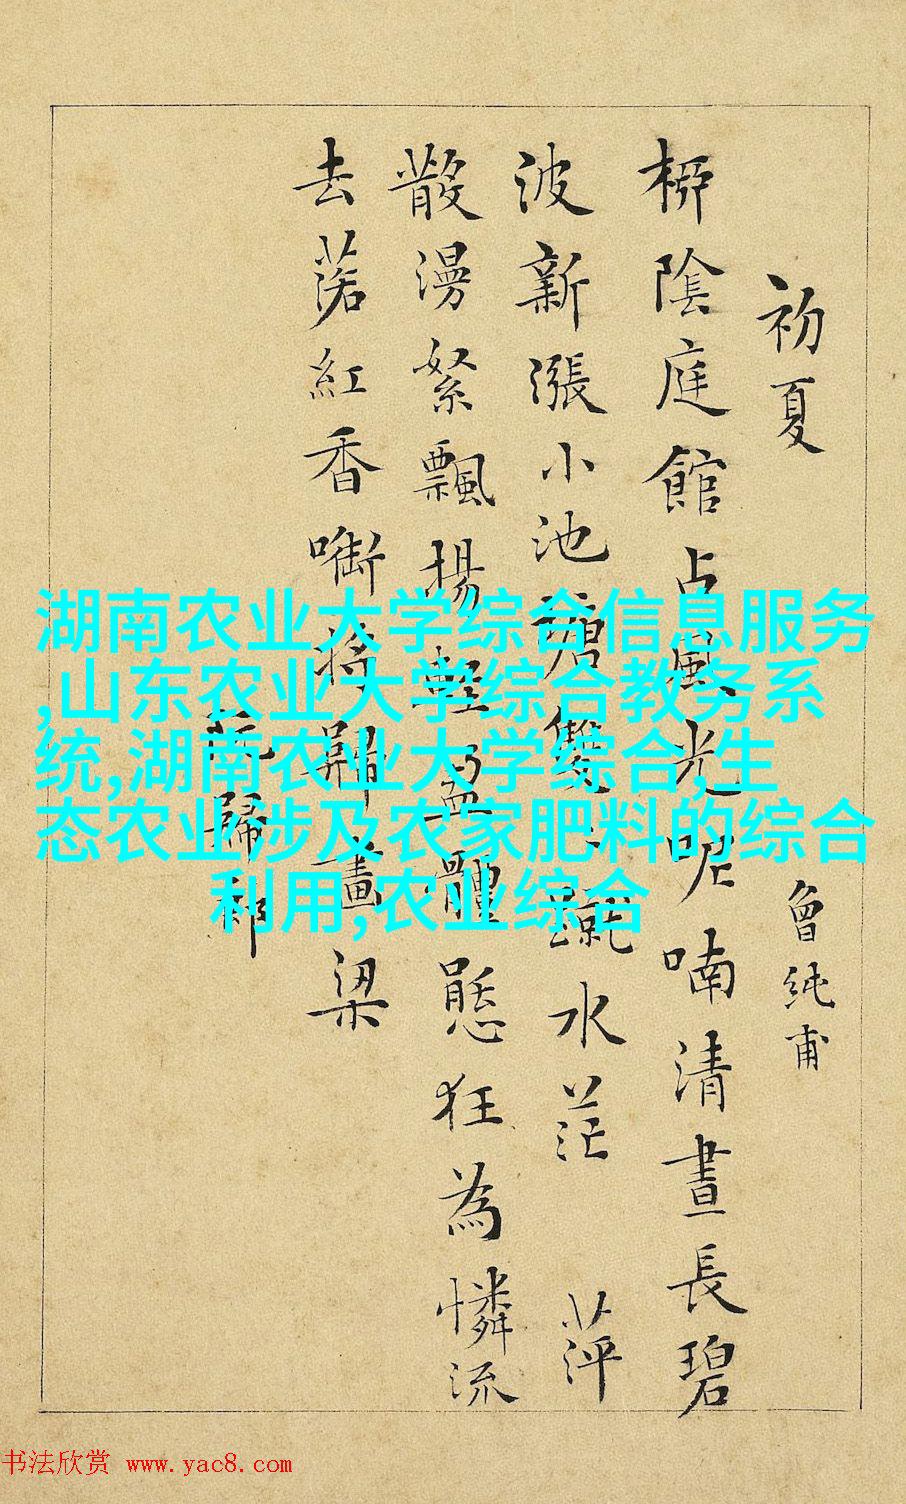 初夏
曾純甫
栁陰庭館占風光呢喃清晝長碧
波新漲小池塘雙雙蹴水茫萍
散漫絮飄揚輕盈體態狂為憐流
去落紅香啣將歸畫梁
阮歸郎
湖南农业大学综合信息服务
,山东农业大学综合教务系
统,湖南农业大学综合,生
态农业涉及农家肥料的综合
利用,农业综合
书法欣赏 www.yac8.com